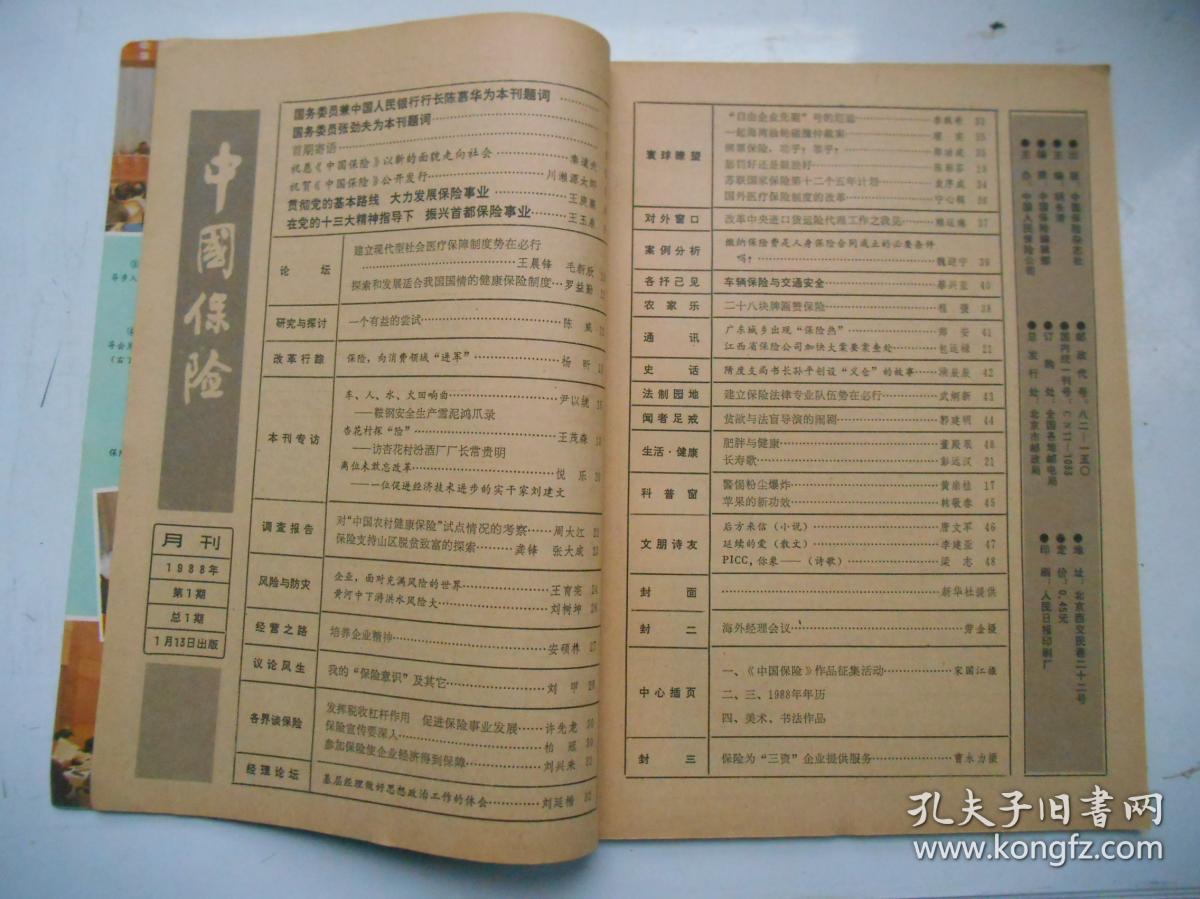 中國保险
月刊
1988年
第1期
总1期
1月13日出版
国务委员兼中国人民银行行长陈慕华为本刊题词
国务委员张劲夫为本刊题词
首期寄语
祝愿《中国保险》以新的面貌走向社会
祝贺《中国保险》公开发行 川濑源太郎
贯彻党的基本路线 大力发展保险事业
在党的十三大精神指导下 振兴首都保险事业
论坛
建立现代型社会医疗保障制度势在必行
王晨锋 毛新欣
探索和发展适合我国国情的健康保险制度 罗益勤
研究与探讨
一个有益的尝试 陈 威
改革行踪
保险，向消费领域“进军” 杨 昕
本刊专访
车、人、水、火回响曲 尹以镜
——鞍钢安全生产雪泥鸿爪录
杏花村探“险” 王茂森
——访杏花村汾酒厂厂长常贵明
离位未敢忘改革 悦 乐
——一位促进经济技术进步的实干家刘建文
调查报告
对“中国农村健康保险”试点情况的考察 周大江
保险支持山区脱贫致富的探索 龚锋 张大成
风险与防灾
企业，面对充满风险的世界 王育宪 24
黄河中下游洪水风险大 刘树坤 26
经营之路
培养企业精神 安硕林 27
议论风生
我的“保险意识”及其它 刘 甲
各界谈保险
发挥税收杠杆作用 促进保险事业发展 许先龙
保险宣传要深入
参加保险使企业经济得到保障 刘兴来
经理论坛
基层经理做好思想政治工作的体会 刘延楷
寰球瞭望
苏联国家保险第十二个五年计划 34
国外医疗保险制度的改革 宁心榕 36
对外窗口
改革中央进口货运险代理工作之我见 37
案例分析
缴纳保险费是人身保险合同成立的必要条件
吗？ 魏迎宁 39
各抒己见
车辆保险与交通安全 40
农家乐
二十八块牌匾赞保险 38
通讯
广东城乡出现“保险热” 郑 安 41
江西省保险公司加快大案要案查处 21
史话
隋度支尚书长孙平创设“义仓”的故事 42
法制园地
建立保险法律专业队伍势在必行 武炳新 43
闻者足戒
贫欲与法盲导演的闹剧 郭建明 44
生活·健康
肥胖与健康
长寿歌 彭远汉 21
科普窗
警惕粉尘爆炸 黄崇桂 17
苹果的新功效 韩敬春 45
文朋诗友
后方来信（小说） 唐文军 46
延续的爱（散文） 李建亚 47
PICC，你来——（诗歌） 梁 志 48
封面
新华社提供
封二
海外经理会议 劳金摄
中心插页
一、《中国保险》作品征集活动 宋国江摄
二、三、1988年年历
四、美术、书法作品
封三
保险为“三资”企业提供服务 曹永力摄
●出版：中国保险杂志社
●编辑：中国保险编辑部
●主办：中国人民保险公司
●邮政代号：八二—一五〇
●国内统一刊号：CN11—1033
●订购处：全国各地邮电局
●总发行处：北京市邮政局
●地址：北京西交民巷二十二号
●定价：0.45元
●印刷：人民日报印刷厂
孔夫子旧书网
www.kongfz.com